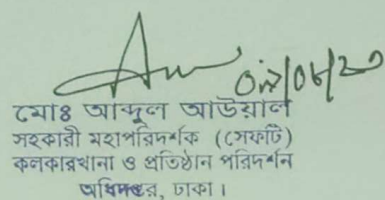 মোঃ আব্দুল আউয়াল
সহকারী মহাপরিদর্শক (সেফটি)
কলকারখানা ও প্রতিষ্ঠান পরিদর্শন
অধিদপ্তর, ঢাকা।